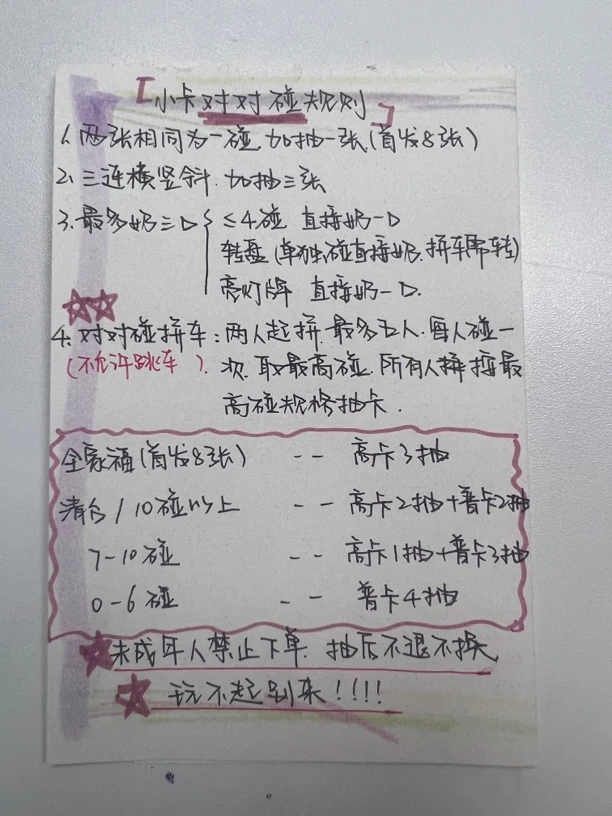 「小卡对对碰规则」
1、两张相同为一碰.加抽一张(首发8张)
2、三连横竖斜.加抽三张
3、最多奶三口{≤4碰 直接奶一口
转盘(单独碰直接奶.拼车需转)
亮灯牌 直接奶一口.
4、对对碰拼车:两人起拼.最多五人.每人碰一
(不允许跳车). 次.取最高碰.所有人按最
高碰规格抽卡.
全家福(首发8张) -- 高卡3抽
清台/10碰以上 -- 高卡2抽+普卡2抽
7-10碰 -- 高卡1抽+普卡3抽
0-6碰 -- 普卡4抽
未成年人禁止下单.抽后不退不换
玩不起别来!!!!